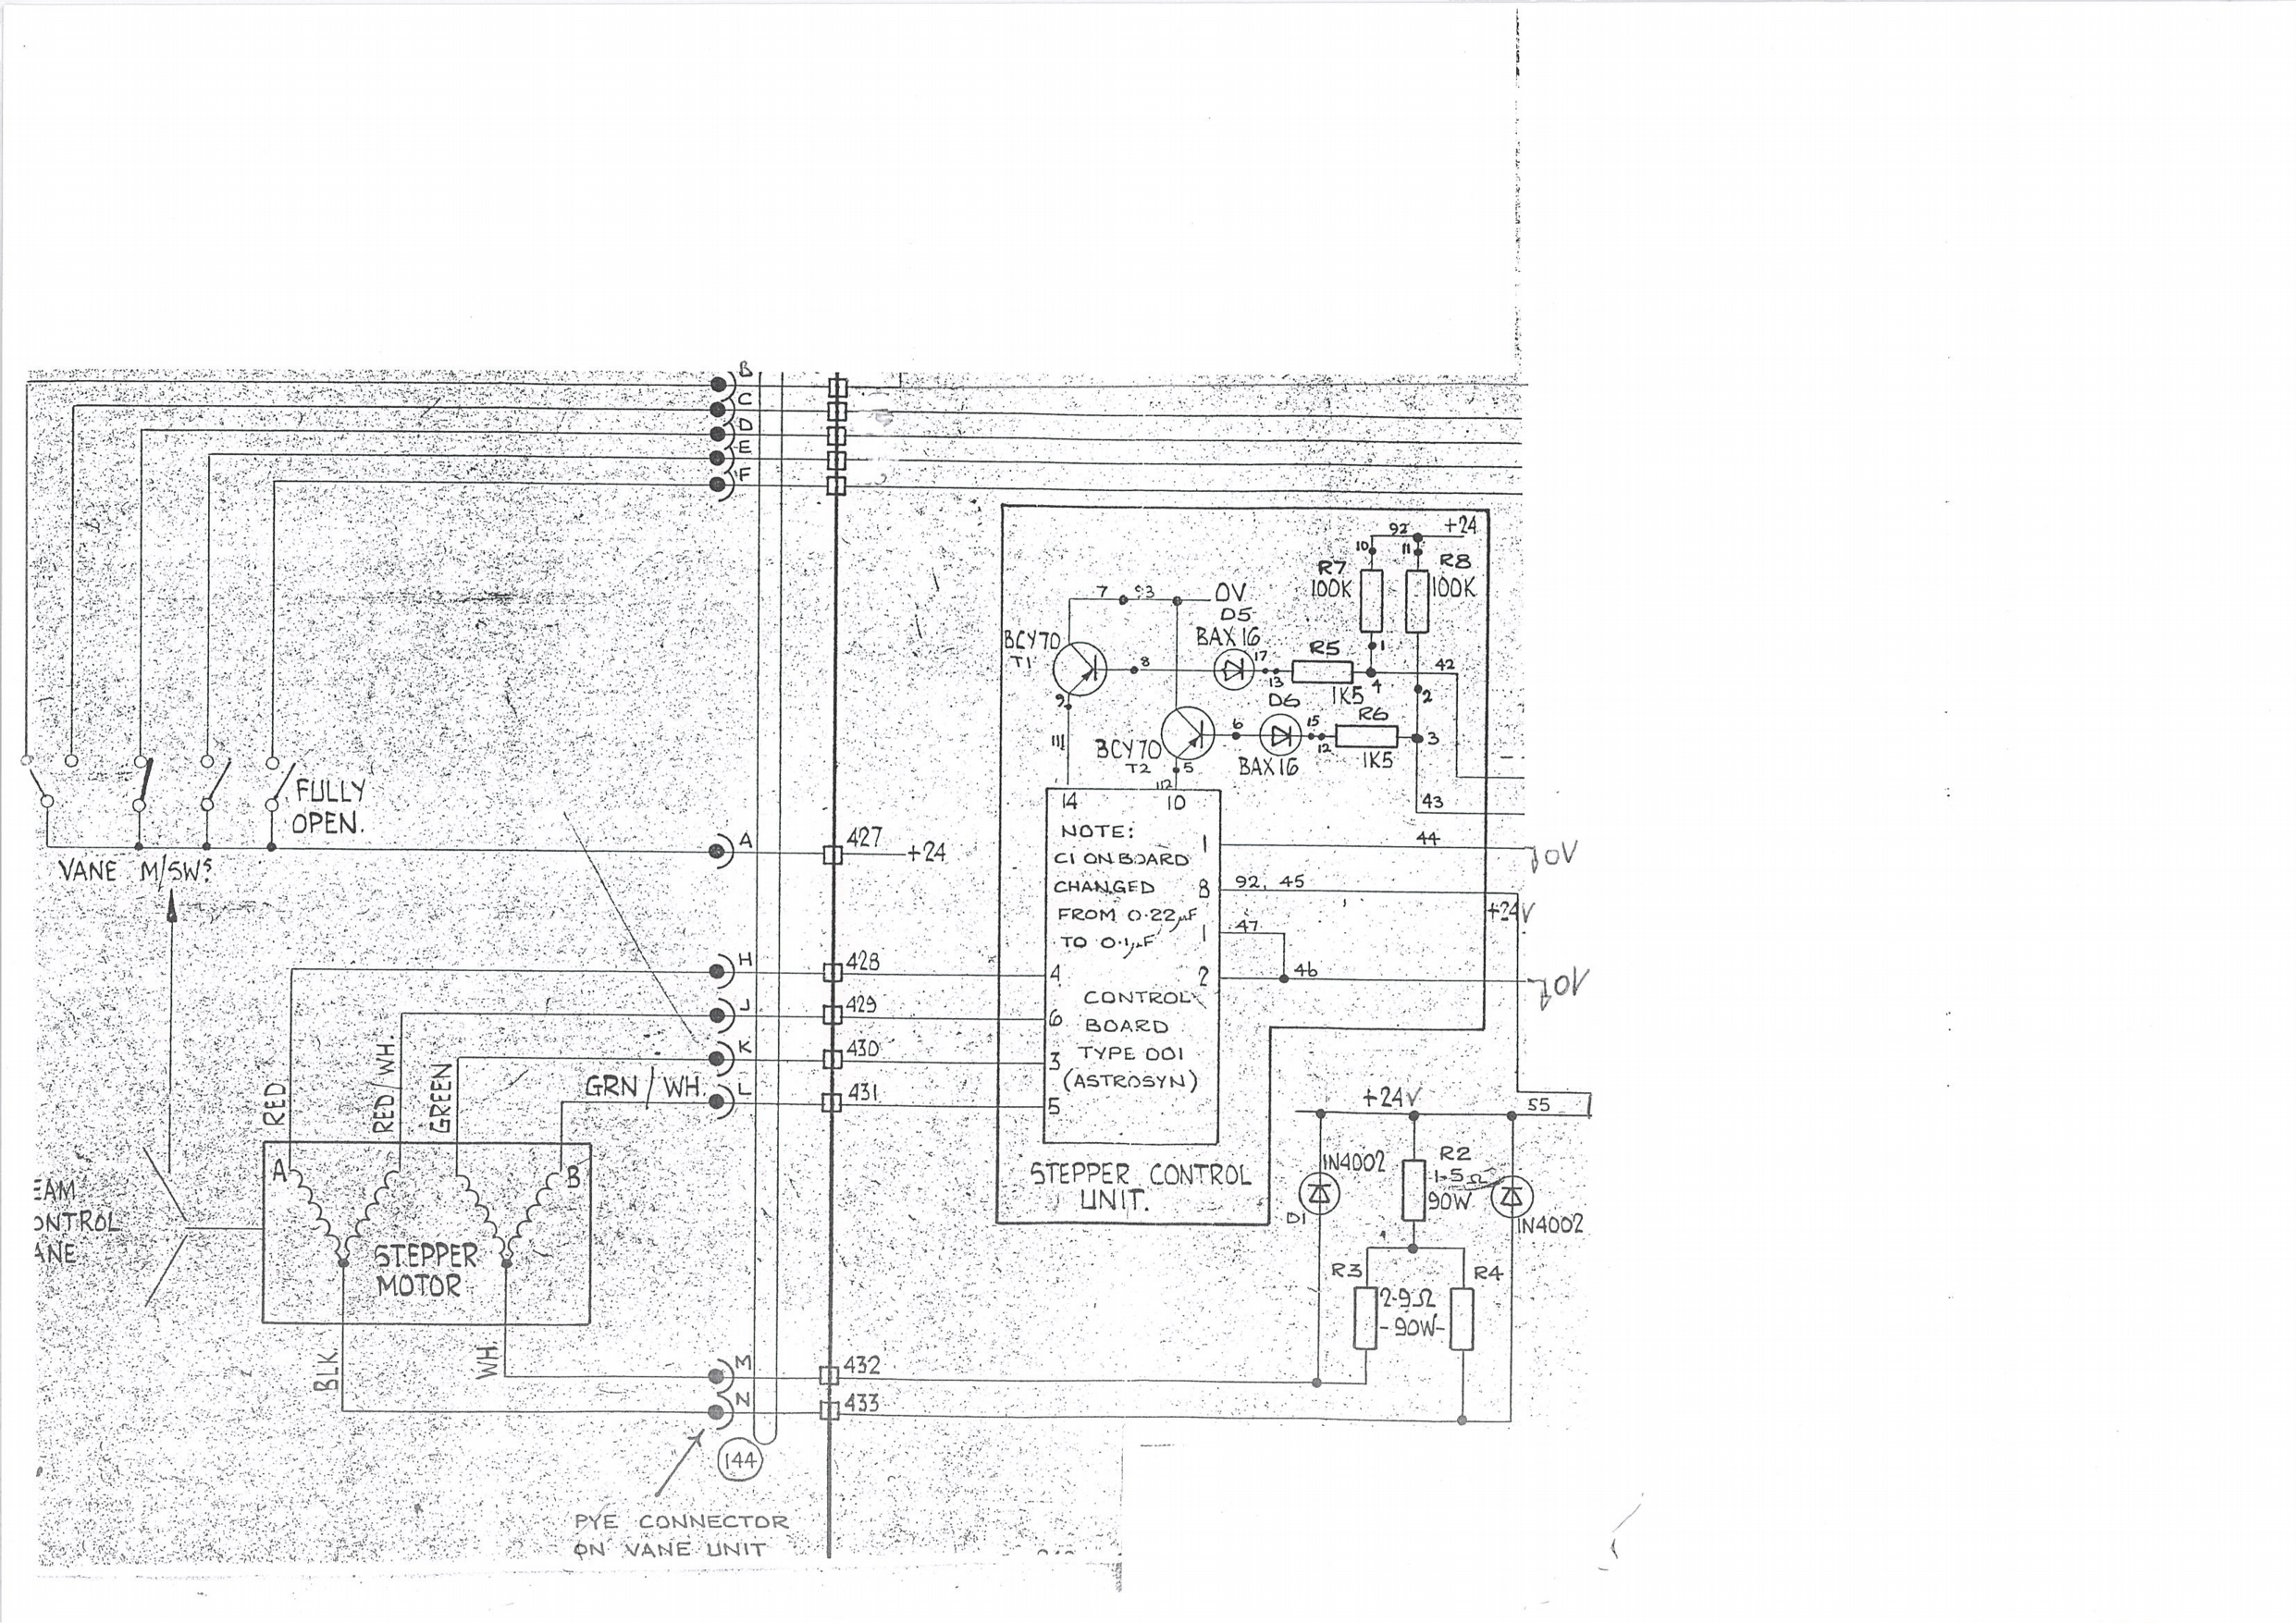 B
C
D
E
F
FULLY
OPEN.
VANE M/SWS
A
427
+24
H
428
J
429
K
430
L
431
RED
RED/WH.
GREEN
GRN/WH.
A
B
STEPPER
MOTOR
BLK.
WH.
EAM
ONTROL
ANE
M
432
N
433
144
PYE CONNECTOR
ON VANE UNIT
92
+24
10
11
R7
100K
R8
100K
7
93
0V
D5
BAX16
BCY70
T1
8
17
13
R5
1K5
1
4
42
2
9
111
D6
BCY70
T2
6
BAX16
15
12
R6
1K5
3
5
112
43
14
10
NOTE:
C1 ON BOARD
CHANGED
FROM 0.22µF
TO 0.1µF
1
44
0V
8
92, 45
+24V
1
47
2
46
0V
4
6
3
5
CONTROL
BOARD
TYPE 001
(ASTROSYN)
STEPPER CONTROL
UNIT.
+24V
55
IN4002
D1
R2
1.5Ω
90W
IN4002
R3
R4
2.9Ω
-90W-